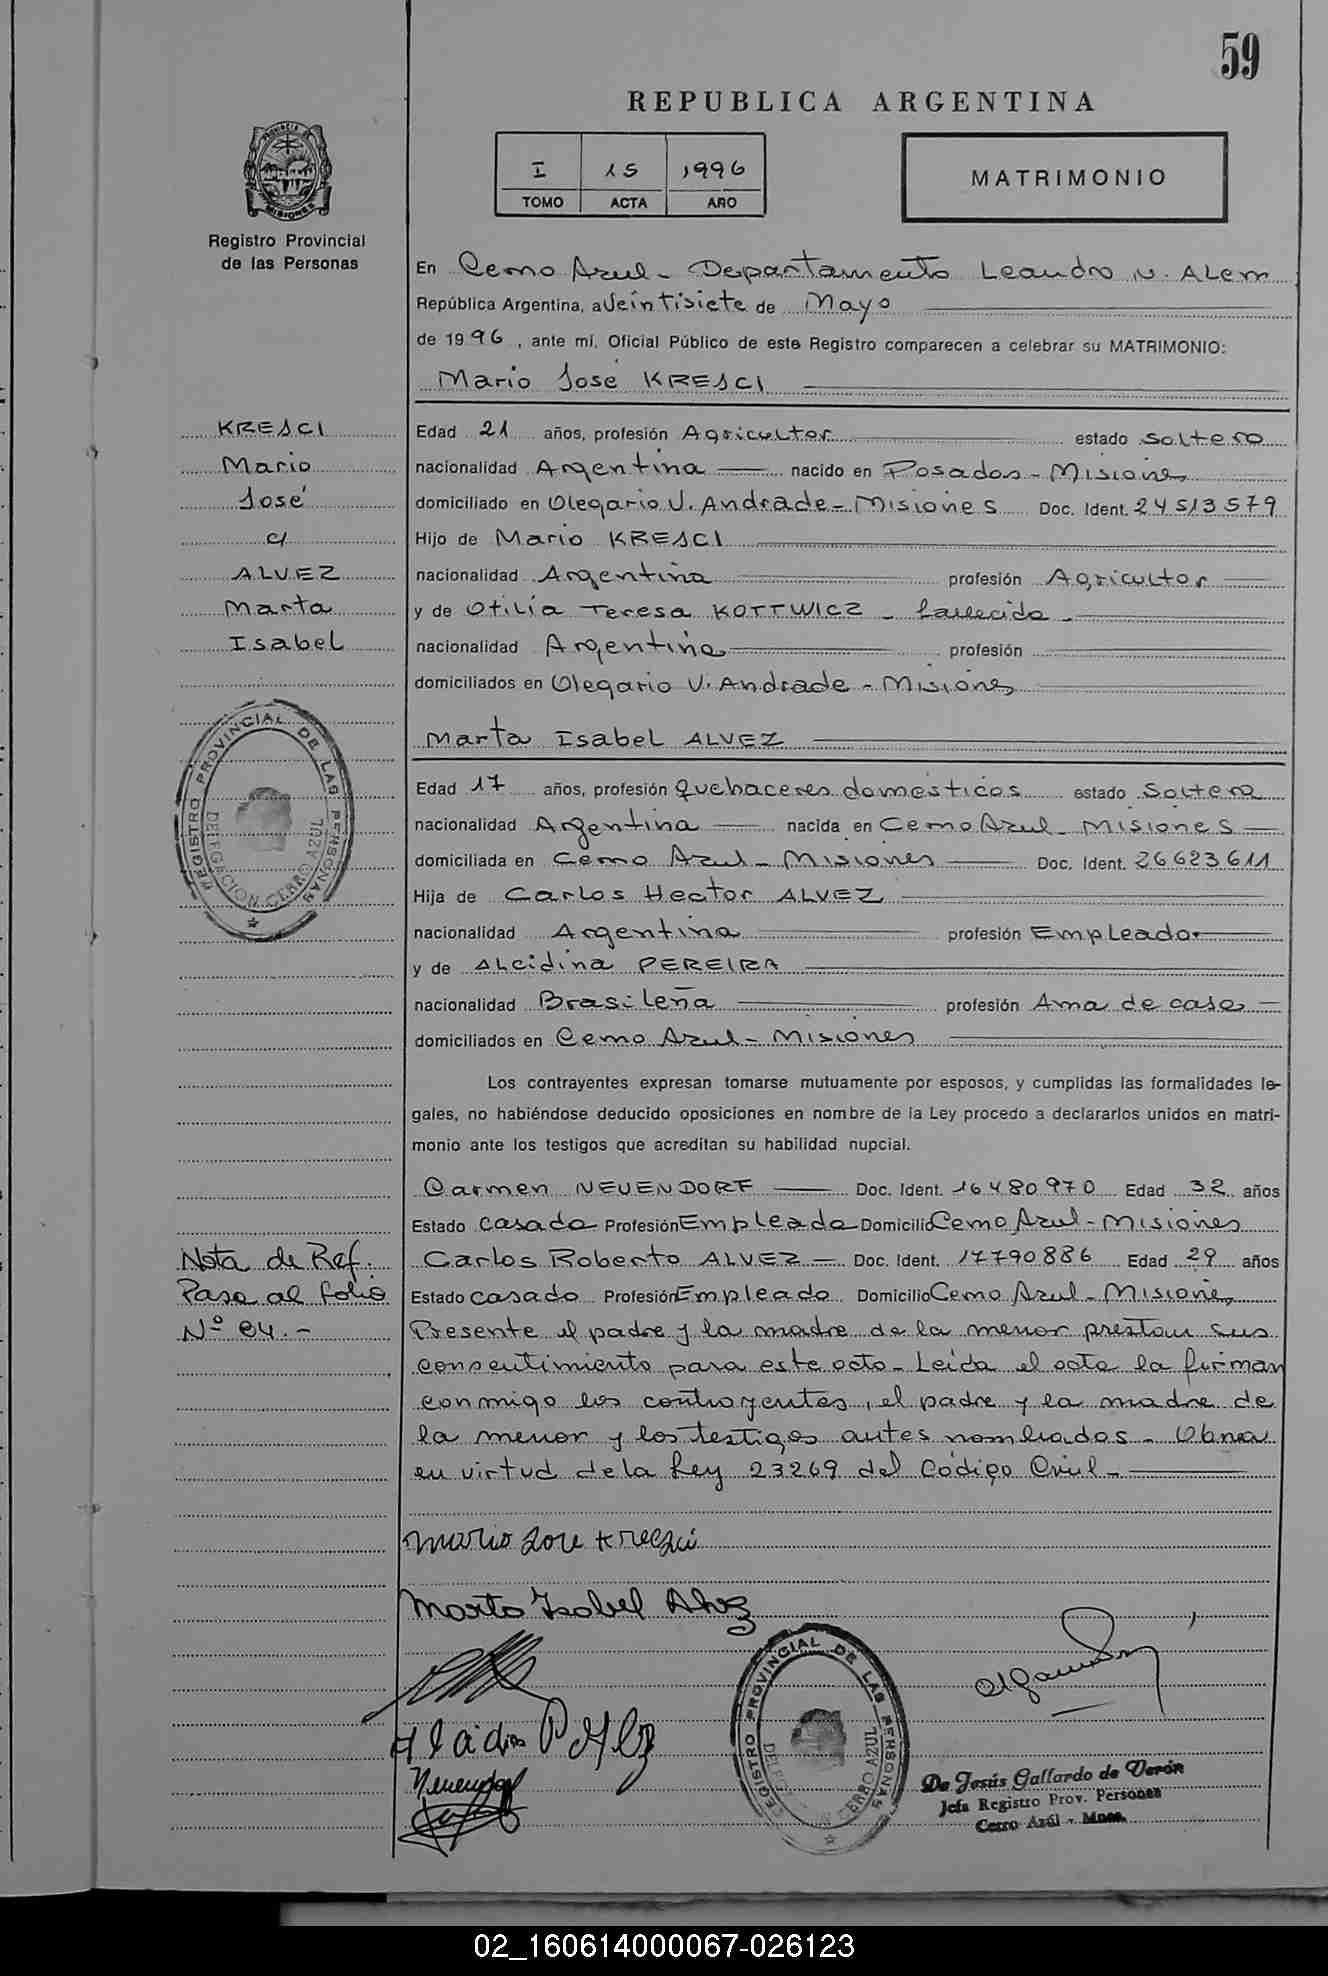 59
REPUBLICA ARGENTINA
I 15 1996
TOMO ACTA AÑO
MATRIMONIO
PROVINCIA DE MISIONES
Registro Provincial
de las Personas
En Cerro Azul - Departamento Leandro N. ALem
República Argentina, a Veintisiete de Mayo
de 1996, ante mí, Oficial Público de este Registro comparecen a celebrar su MATRIMONIO:
Mario José KRESCI
KRESCI
Mario
José
c/
ALVEZ
Marta
Isabel
Edad 21 años, profesión Agricultor estado soltero
nacionalidad Argentina nacido en Posadas - Misiones
domiciliado en Olegario V. Andrade - Misiones Doc. Ident. 24513579
Hijo de Mario KRESCI
nacionalidad Argentina profesión Agricultor
y de Otilia Teresa KOTTWICZ - fallecida -
nacionalidad Argentina profesión
domiciliados en Olegario V. Andrade - Misiones
Marta Isabel ALVEZ
REGISTRO PROVINCIAL DE LAS PERSONAS
DELEGACION CERRO AZUL
Edad 17 años, profesión Quehaceres domésticos estado Soltera
nacionalidad Argentina nacida en Cerro Azul - Misiones
domiciliada en Cerro Azul - Misiones Doc. Ident. 26623611
Hija de Carlos Hector ALVEZ
nacionalidad Argentina profesión Empleado
y de Alcidina PEREIRA
nacionalidad Brasileña profesión Ama de casa
domiciliados en Cerro Azul - Misiones
Los contrayentes expresan tomarse mutuamente por esposos, y cumplidas las formalidades le-
gales, no habiéndose deducido oposiciones en nombre de la Ley procedo a declararlos unidos en matri-
monio ante los testigos que acreditan su habilidad nupcial.
Carmen NEUENDORF Doc. Ident. 16480970 Edad 32 años
Estado casada Profesión Empleada Domicilio Cerro Azul - Misiones
Carlos Roberto ALVEZ Doc. Ident. 17790886 Edad 29 años
Estado casado Profesión Empleado Domicilio Cerro Azul - Misiones
Nota de Ref.
Pasa al folio
Nº 84.-
Presente el padre y la madre de la menor prestan sus
consentimiento para este acto - Leída el acta la firman
conmigo los contrayentes, el padre y la madre de
la menor y los testigos antes nombrados - Obran
en virtud de la Ley 23269 del Código Civil -
Mario Jose Kresci
Marta Isabel Alvez
REGISTRO PROVINCIAL DE LAS PERSONAS
DELEGACION CERRO AZUL
De Jesús Gallardo de Verón
Jefa Registro Prov. Personas
Cerro Azúl - Mnes.
02_160614000067-026123